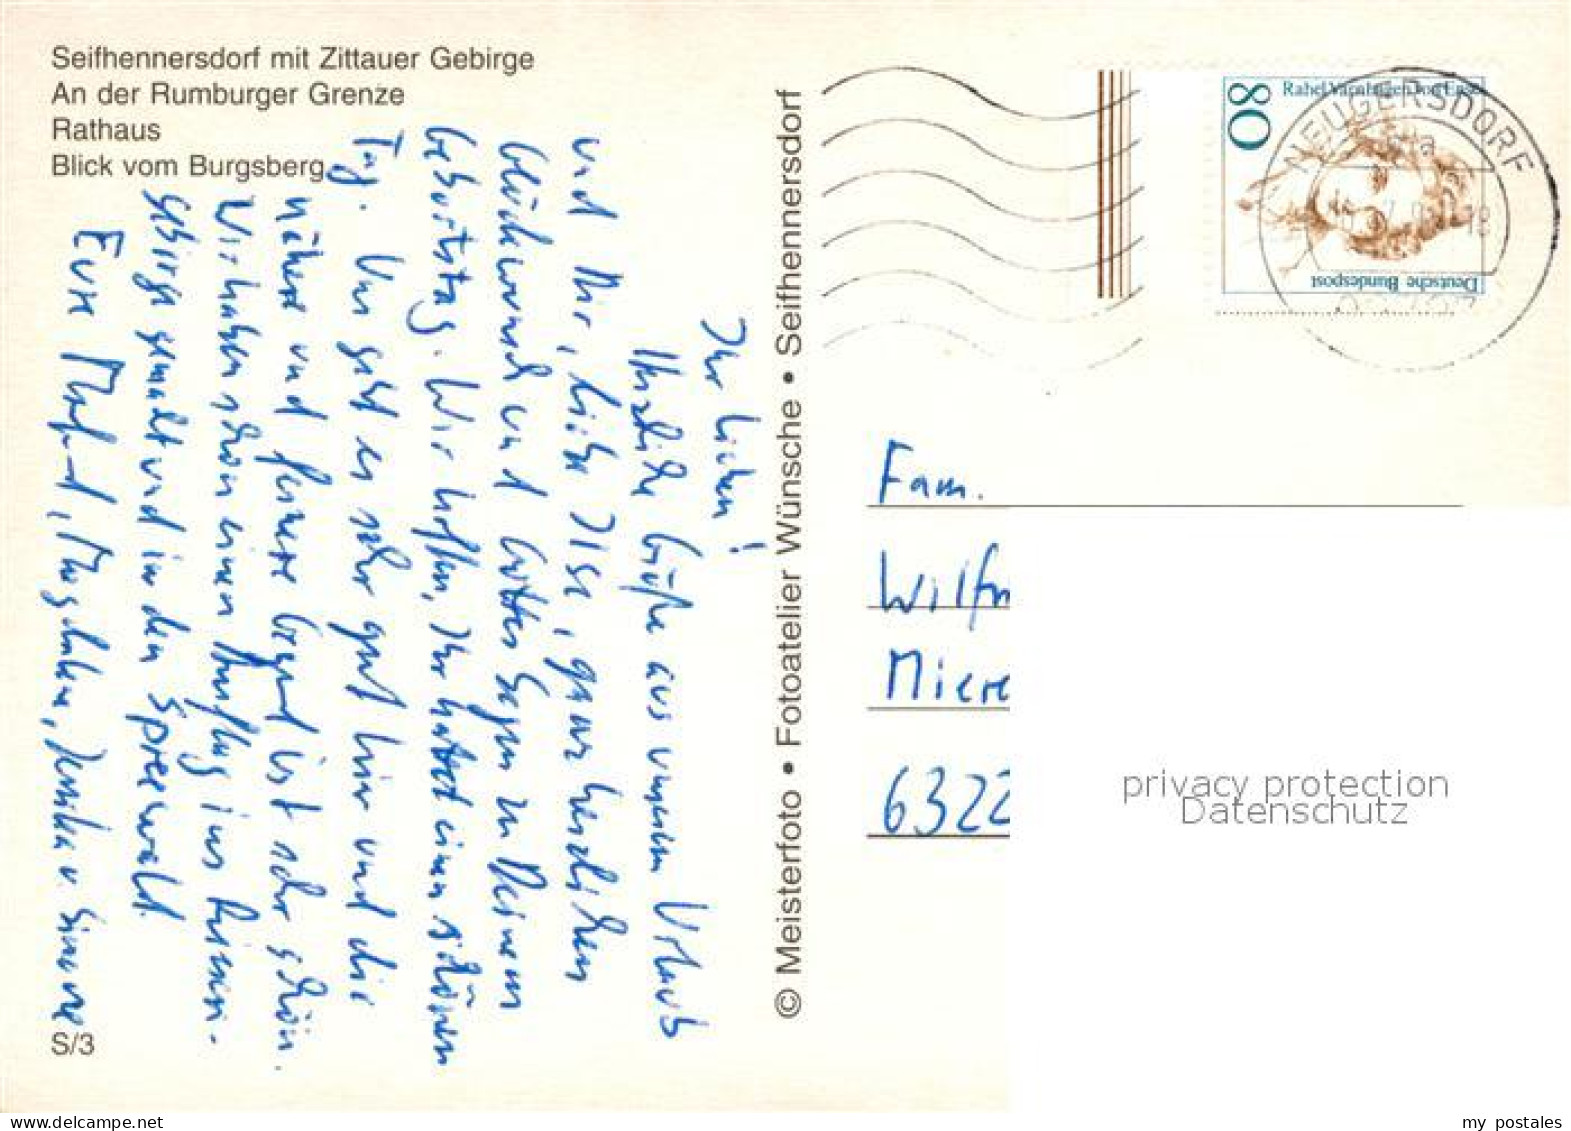 Seifhennersdorf mit Zittauer Gebirge
An der Rumburger Grenze
Rathaus
Blick vom Burgsberg
Ihr Lieben!
Herzliche Grüße aus unserem Urlaub
und Dir, liebe Ilse, ganz herzlichen
Glückwunsch und Gottes Segen zu Deinem
Geburtstag. Wir hoffen, Ihr hattet einen schönen
Tag. Uns geht es sehr gut hier und die
nähere und fernere Gegend ist sehr schön.
Wir haben schon einen Ausflug ins Riesen-
gebirge gemacht und in den Spreewald.
Eure u. Simone
S/3
© Meisterfoto • Fotoatelier Wünsche • Seifhennersdorf
80
Rahel Varnhagen von Ense
Deutsche Bundespost
NEUGERSDORF
a
18
Fam.
Wilfr
Miere
6322
privacy protection
Datenschutz
my postales